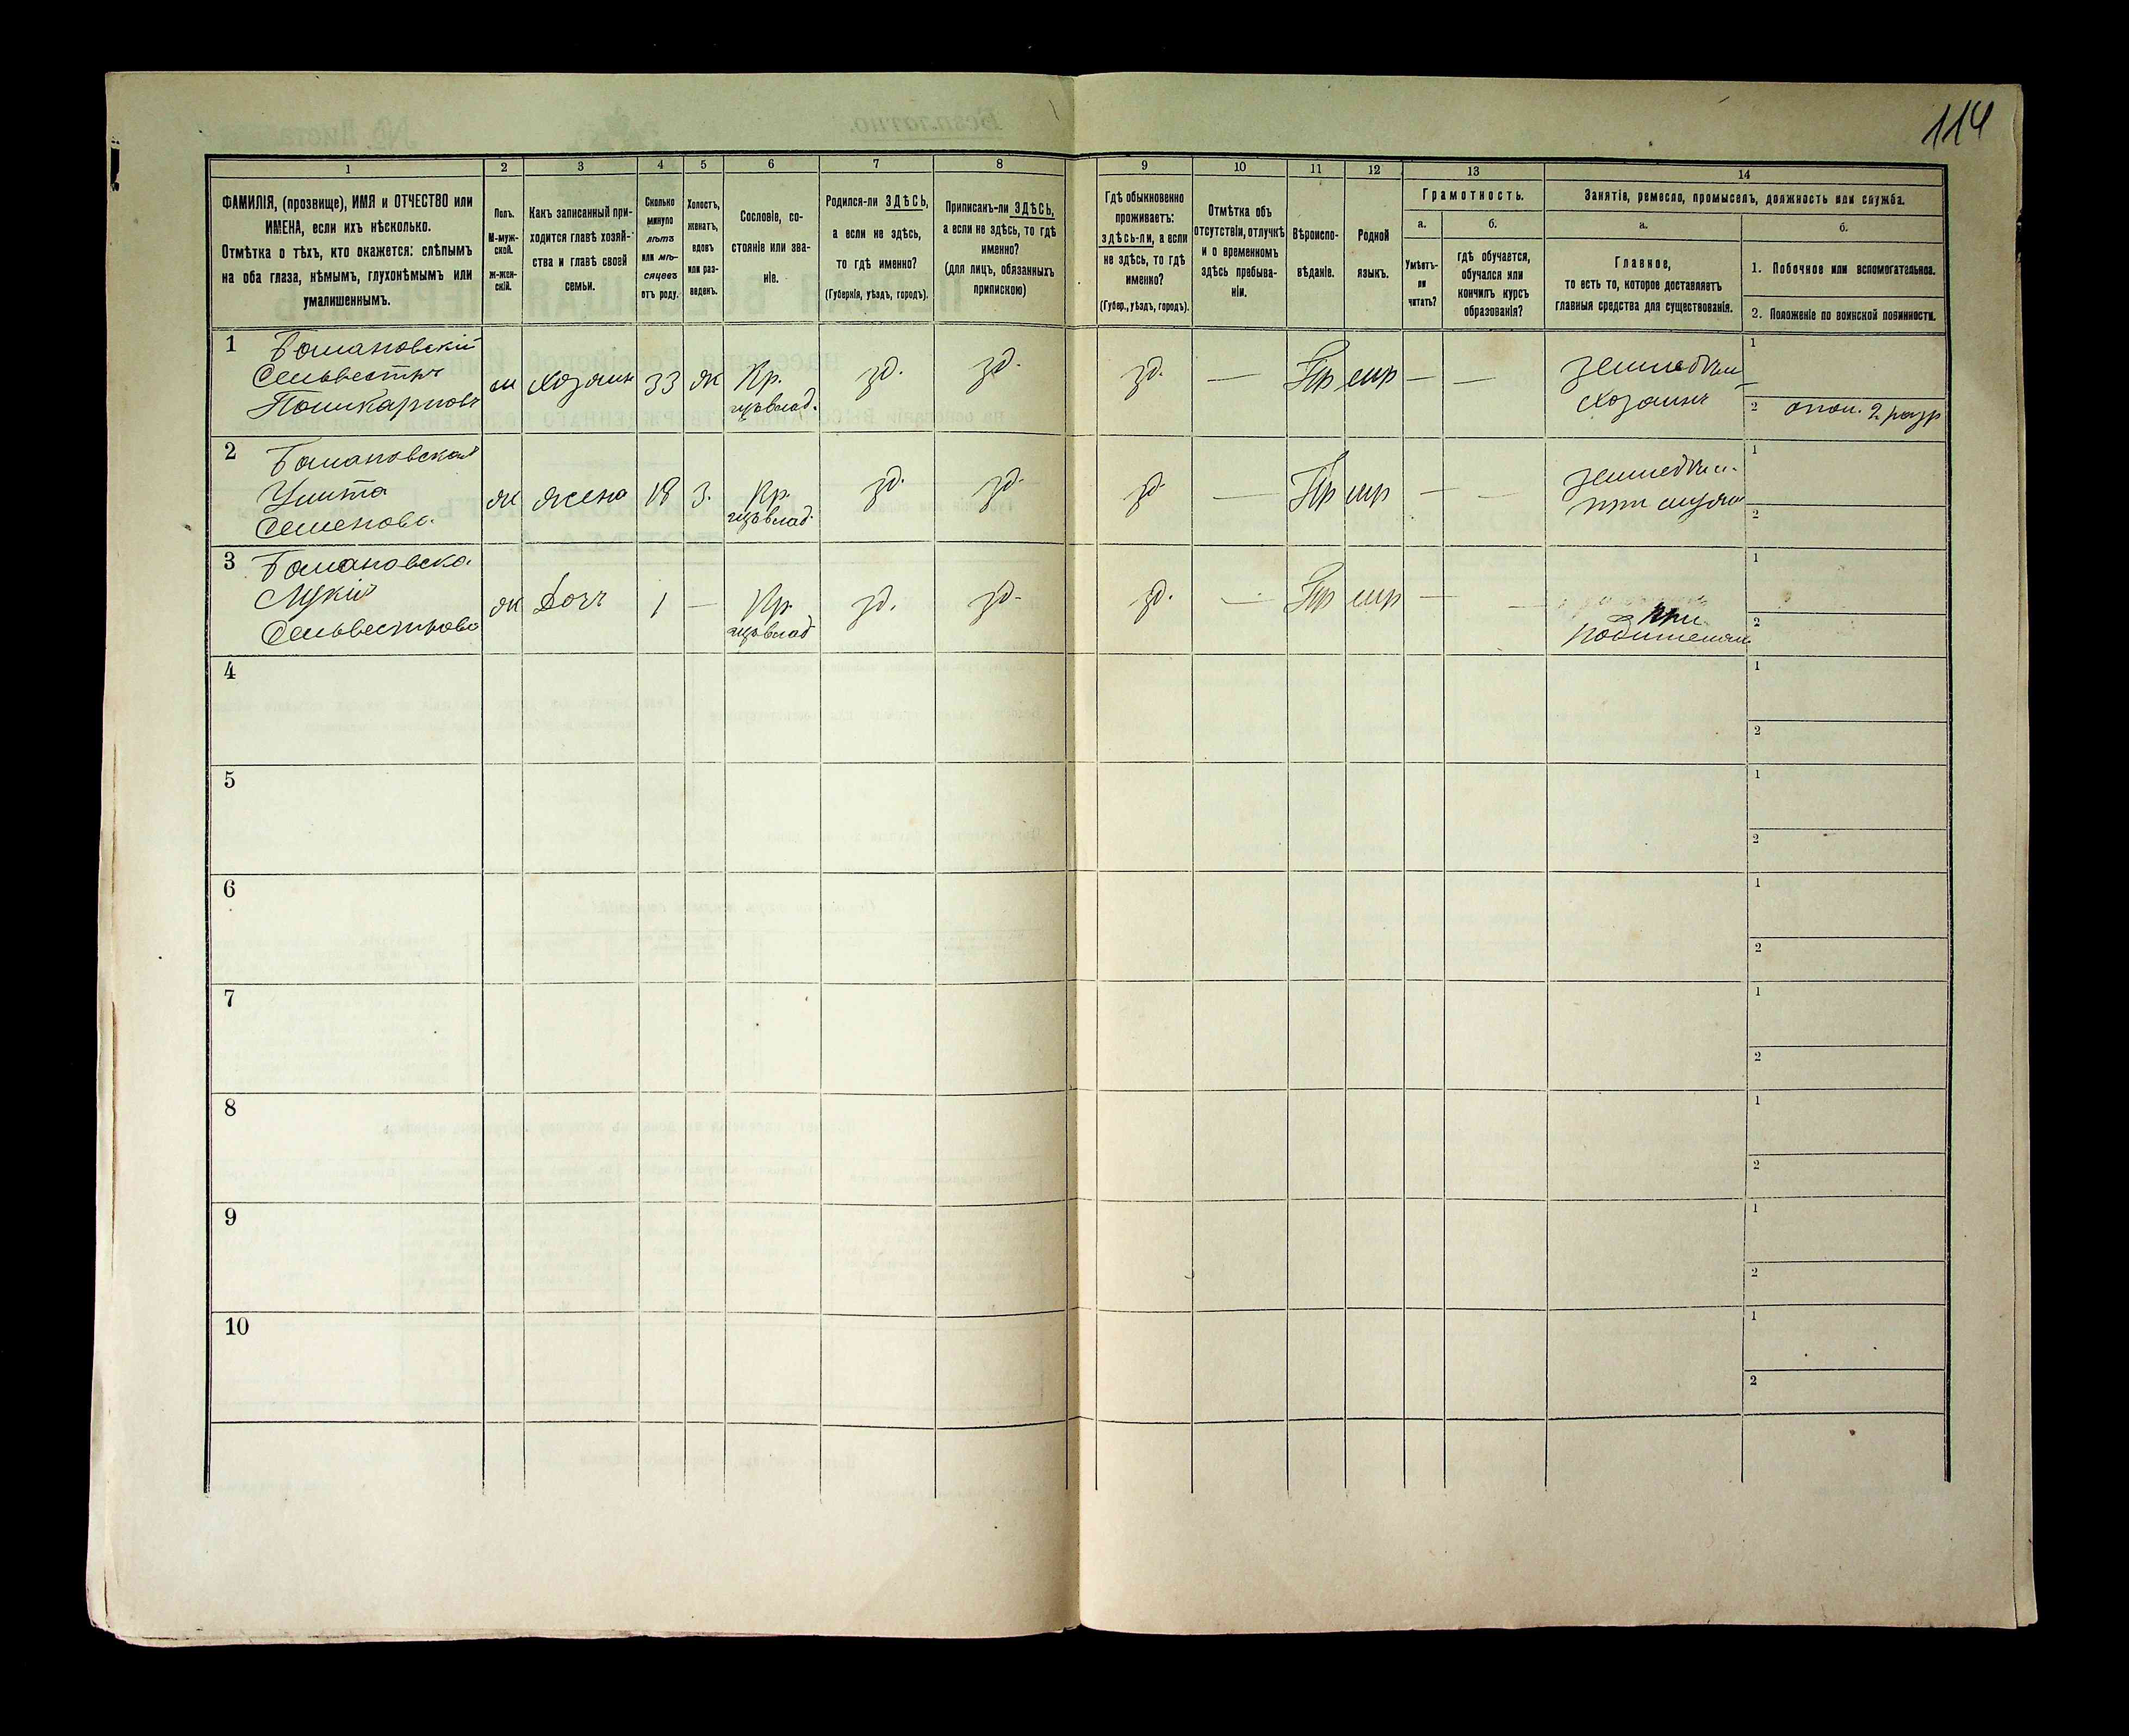 114
1 2 3 4 5 6 7 8 9 10 11 12 13 14
ФАМИЛІЯ, (прозвище), ИМЯ и ОТЧЕСТВО или
ИМЕНА, если ихъ нѣсколько.
Отмѣтка о тѣхъ, кто окажется: слѣпымъ
на оба глаза, нѣмымъ, глухонѣмымъ или
умалишеннымъ.
Полъ.
М-муж-
ской.
ж-жен-
скій.
Какъ записанный при-
ходится главѣ хозяй-
ства и главѣ своей
семьи.
Сколько
минуло
лѣтъ
или мѣ-
сяцевъ
отъ роду.
Холостъ,
женатъ,
вдовъ
или раз-
веденъ.
Сословіе, со-
стояніе или зва-
ніе.
Родился-ли ЗДѢСЬ,
а если не здѣсь,
то гдѣ именно?
(Губернія, уѣздъ, городъ).
Приписанъ-ли ЗДѢСЬ,
а если не здѣсь, то гдѣ
именно?
(для лицъ, обязанныхъ
припискою)
Гдѣ обыкновенно
проживаетъ:
здѣсь-ли, а если
не здѣсь, то гдѣ
именно?
(Губер., уѣздъ, городъ).
Отмѣтка объ
отсутствіи, отлучкѣ
и о временномъ
здѣсь пребыва-
ніи.
Вѣроиспо-
вѣданіе.
Родной
языкъ.
Грамотность.
а.
Умѣетъ-
ли
читать?
б.
гдѣ обучается,
обучался или
кончилъ курсъ
образованія?
Занятіе, ремесло, промыселъ, должность или служба.
а.
Главное,
то есть то, которое доставляетъ
главныя средства для существованія.
б.
1. Побочное или вспомогательное.
2. Положеніе по воинской повинности.
1
Сельвестръ
м хозяин 33 ж Кр. зд. зд. зд. — Пр — —
хозяинъ
1
2 опол. 2 разр
2
Семенова
ж жена 18 з. Кр. зд. зд. зд. — Пр — —
1
2
3
Сельвестрова
ж Дочь 1 — Кр. зд. зд. зд. — Пр — —
при
родителяхъ
1
2
4
1
2
5
1
2
6
1
2
7
1
2
8
1
2
9
1
2
10
1
2